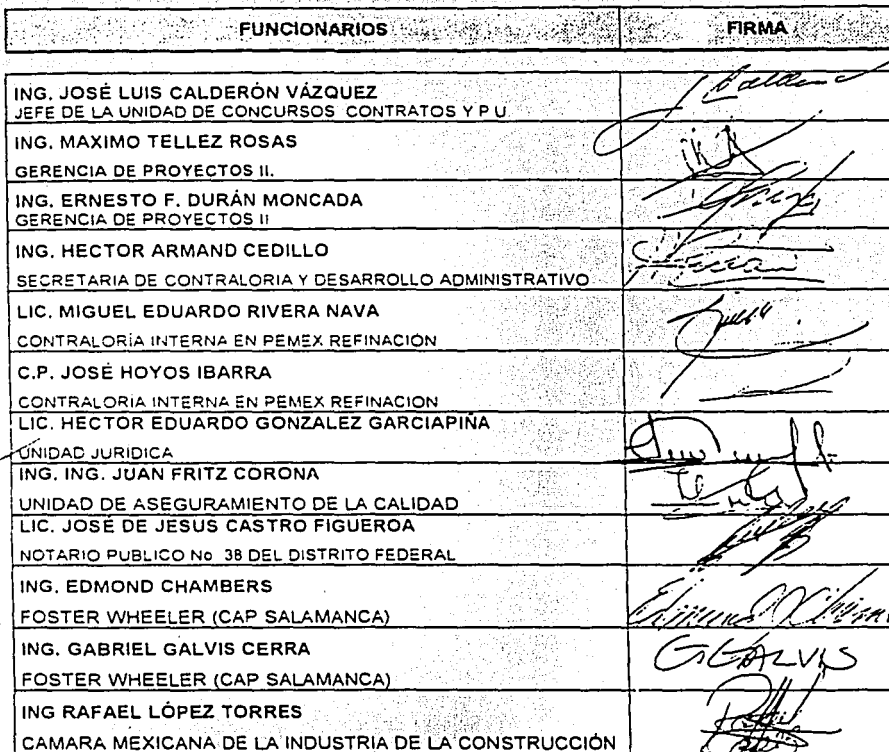 FUNCIONARIOS FIRMA
ING. JOSÉ LUIS CALDERÓN VÁZQUEZ
JEFE DE LA UNIDAD DE CONCURSOS CONTRATOS Y P U
ING. MAXIMO TELLEZ ROSAS
GERENCIA DE PROYECTOS II.
ING. ERNESTO F. DURÁN MONCADA
GERENCIA DE PROYECTOS II
ING. HECTOR ARMAND CEDILLO
SECRETARIA DE CONTRALORIA Y DESARROLLO ADMINISTRATIVO
LIC. MIGUEL EDUARDO RIVERA NAVA
CONTRALORÍA INTERNA EN PEMEX REFINACIÓN
C.P. JOSÉ HOYOS IBARRA
CONTRALORIA INTERNA EN PEMEX REFINACION
LIC. HECTOR EDUARDO GONZALEZ GARCIAPIÑA
UNIDAD JURIDICA
ING. ING. JUAN FRITZ CORONA
UNIDAD DE ASEGURAMIENTO DE LA CALIDAD
LIC. JOSÉ DE JESUS CASTRO FIGUEROA
NOTARIO PUBLICO No 38 DEL DISTRITO FEDERAL
ING. EDMOND CHAMBERS
FOSTER WHEELER (CAP SALAMANCA)
ING. GABRIEL GALVIS CERRA
G. GALVIS
FOSTER WHEELER (CAP SALAMANCA)
ING RAFAEL LÓPEZ TORRES
CAMARA MEXICANA DE LA INDUSTRIA DE LA CONSTRUCCIÓN